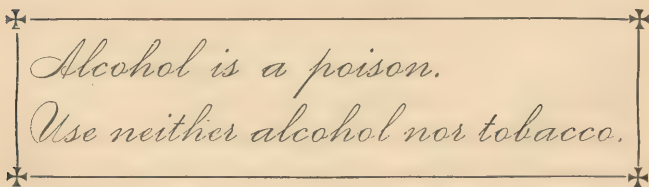 Alcohol is a poison.
Use neither alcohol nor tobacco.